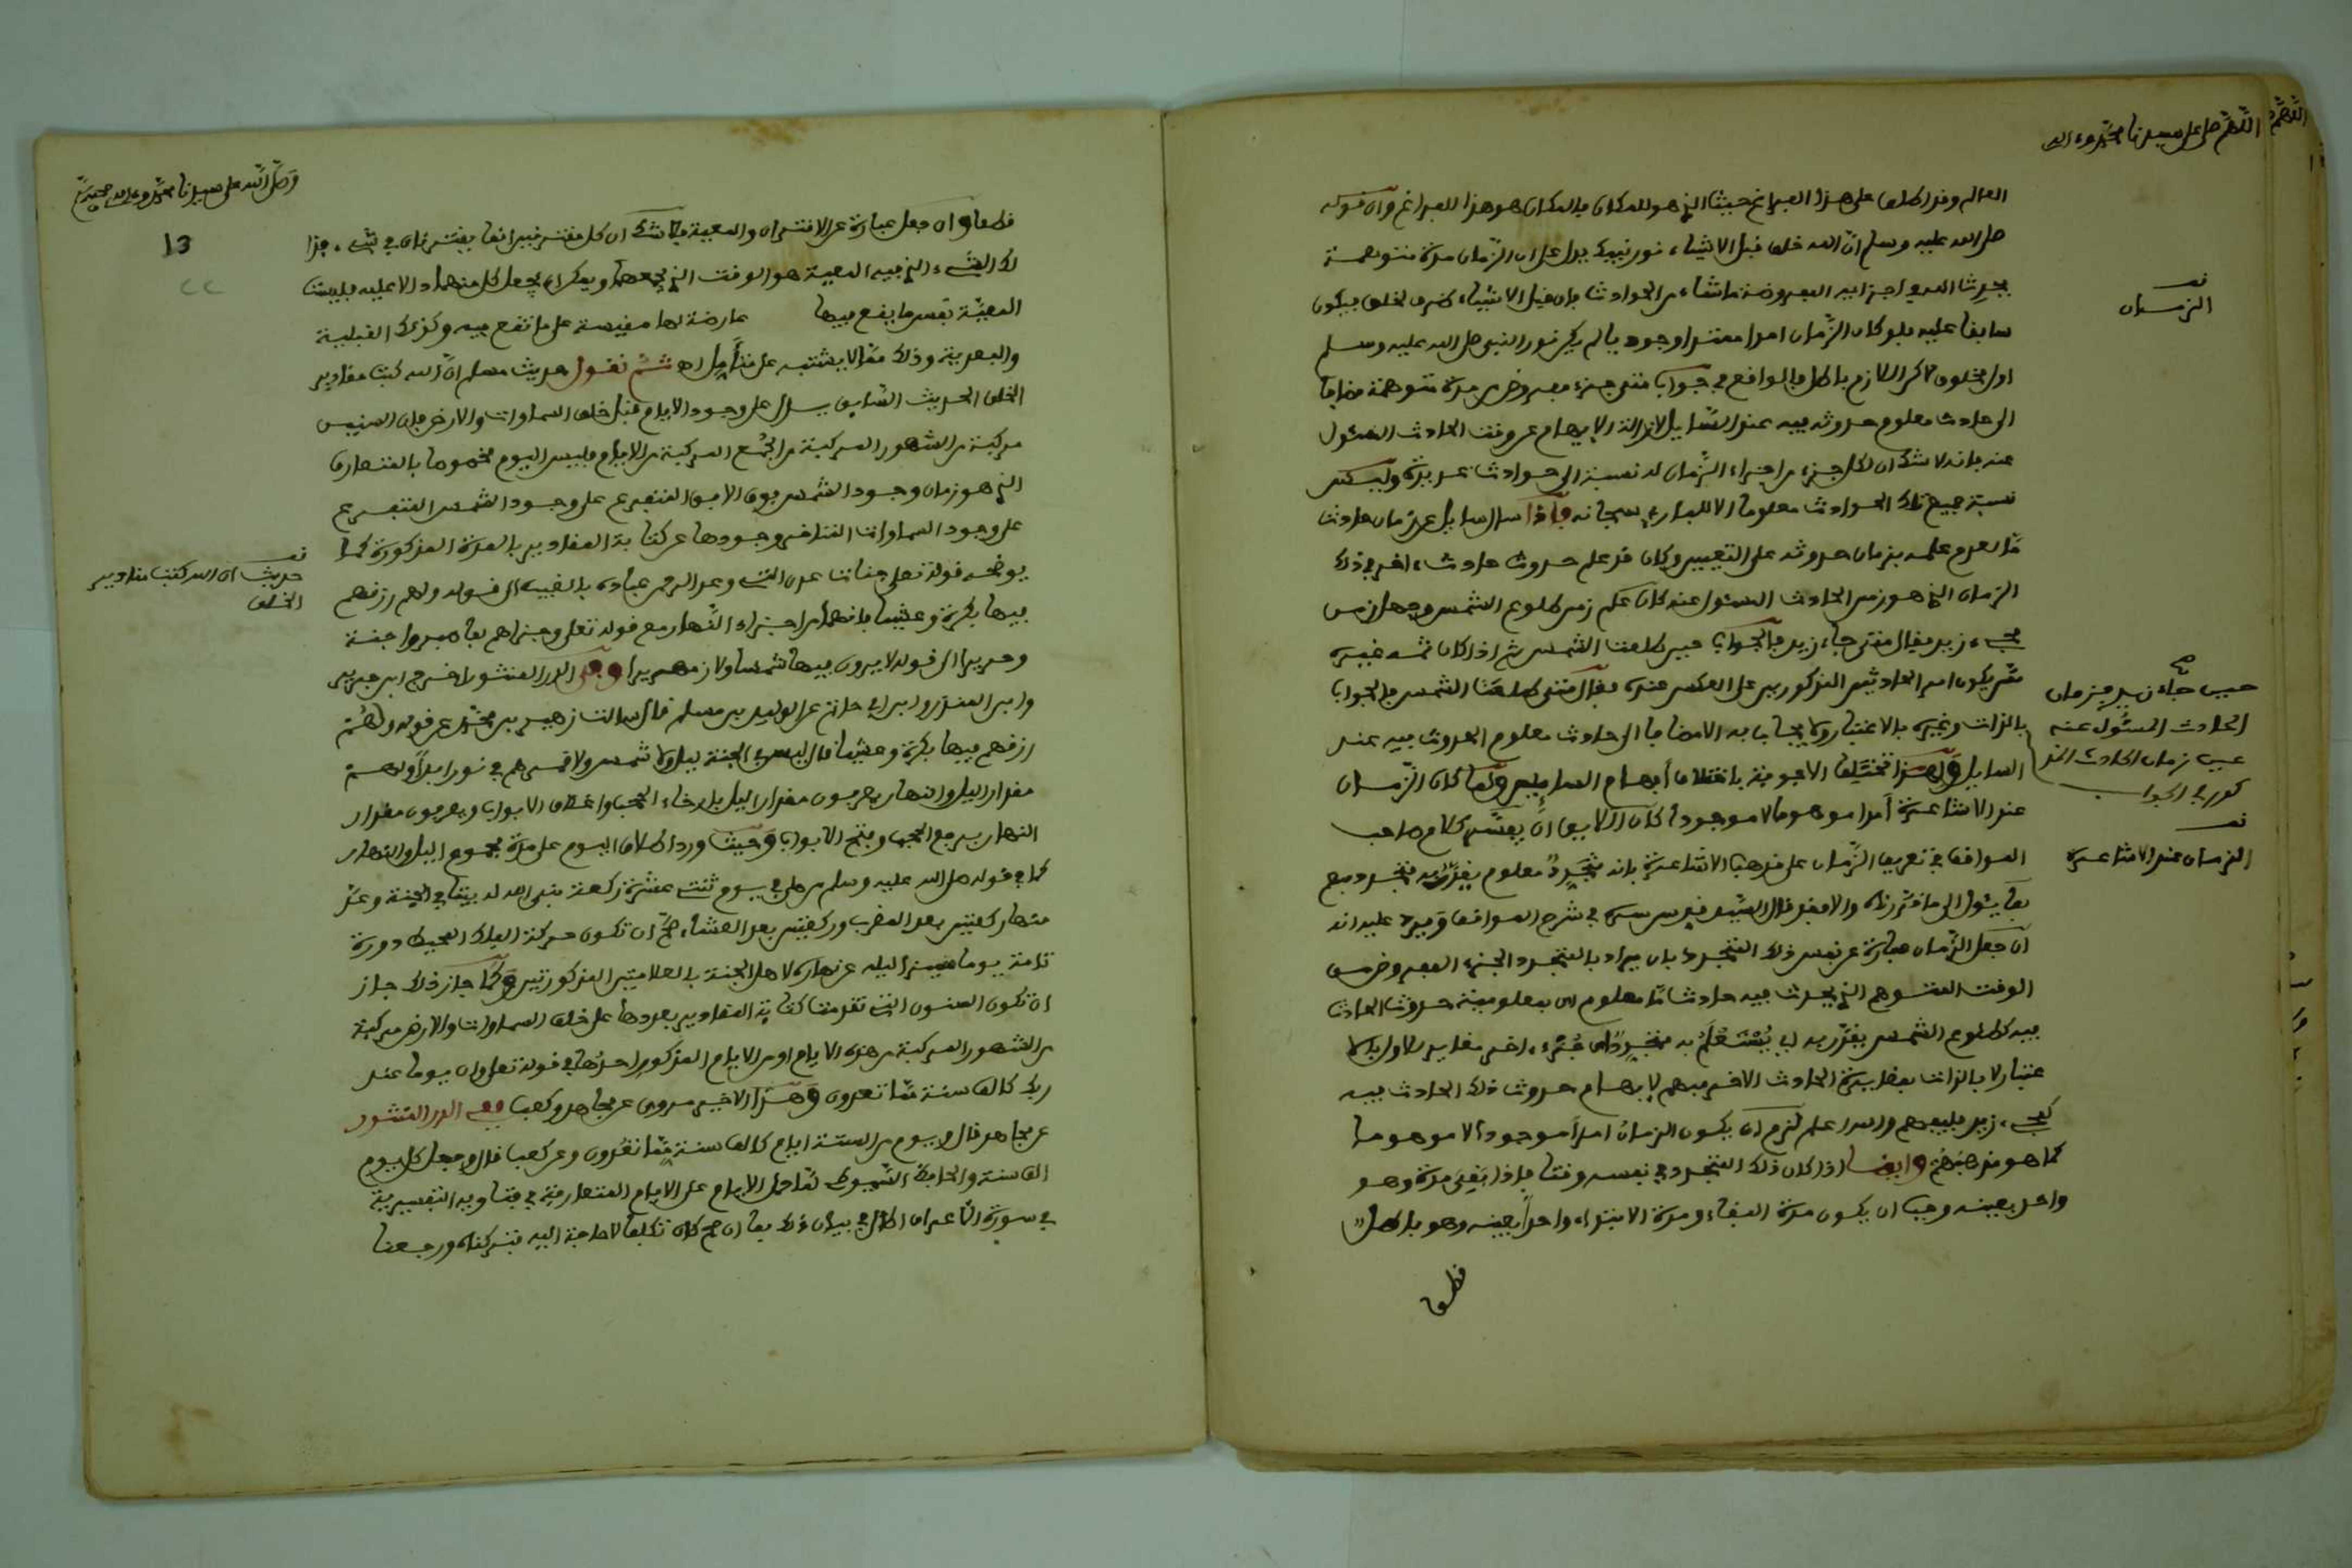 اللهم صل على سيدنا محمد وءاله
العالم وقد اطلق على هذا الفراغ حيث الذي هو للمكان فالمكان هو هذا الفراغ وان قوله
صلى الله عليه وسلم ان الله خلق قبل الاشياء نور نبيك يدل على ان الزمان مدة متوهمة
يحدث الله في اجزائه المفروضة ما شاء من الحوادث فان قبل الاشياء ظرف لخلق فيكون
سابقا عليه فلو كان الزمان امرا معتبرا وجوديا لم يكن نور النبي صلى الله عليه وسلم
اول مخلوق لكن اللازم باطل فالواقع في جواب متى جزء مفروض من مدة متوهمة مضافا
الى حادث معلوم حدوثه فيه عند السايل لازالة الابهام عن وقت الحادث المسئول
عنه فانه لا شك ان لكل جزء من اجزاء الزمان له نسبة الى حوادث عديدة وليست
نسبة جميع تلك الحوادث معلوما الا للباري سبحانه فاذا سال سايل عن زمان حادث
ما لعدم علمه بزمان حدوثه على التعيين وكان قد علم حدوث حادث ءاخر في ذلك
الزمان الذي هو زمن الحادث المسئول عنه كان علم زمن طلوع الشمس وجهل زمن
مجيء زيد فقال متى جاء زيد فالجواب حين طلعت الشمس ثم اذا كان ثمه غيره
قد يكون امر الحادثين المذكورين على العكس عنده فقال متى طلعت الشمس فالجواب
بالذات وغيره بالاعتبار ولا يجاب به الامضافا الى حادث معلوم الحدوث فيه عند
السايل ولهذا تختلف الاجوبة باختلاف ابهام السايلين ولما كان الزمان
عند الاشاعرة امرا موهوما لا موجودا كان اللايق ان يفسر كلام صاحب
المواقف في تعريف الزمان على مذهب الاشاعرة بانه متجدد معلوم يقدر به متجدد مبهم
بما يئول الى ما قررناه والا فقد قال السيد قدس سره في شرح المواقف ويرد عليه انه
ان جعل الزمان عبارة عن نفس ذلك المتجدد بان يراد بالمتجدد الجزء المفروض من
الوقت المتوهم الذي يحدث فيه حادث ما معلوم اي بمعلومية حدوث الحادث
فيه كطلوع الشمس يقدر به اي يستعلم به متجدد اي جزء ءاخر مغاير للاول بالا
عتبار لا بالذات بمقارنة الحادث الاخر مبهم لابهام حدوث ذلك الحادث فيه
كمجيء زيد فليفهم والله اعلم لزم ان يكون الزمان امرا موجودا لا موهوما
كما هو مذهبهم وايضا اذا كان ذلك المتجدد في نفسه وقتا فاذا بقي مدة وهو
واحد بعينه وجب ان يكون مدة البقاء ومدة الابتداء واحدا بعينه وهو باطل
قطعا
نص
الزمان
حين جاء زيد فزمان
الحادث المسئول عنه
عين زمان الحادث المذ
كور في الجواب
صح
نص
الزمان عند الاشاعرة
وصل الله على سيدنا محمد وءاله وصحبه
13
قطعا وان جعل عبارة عن الاقتران والمعية فلا شك ان كل مقترنين انما يقترنان في شيء فذا
لك الشيء الذي فيه المعية هو الوقت الذي يجمعهما ويمكن ان يجعل كل منهما دالا عليه فليست
المعية نفس ما يقع فيها عارضة لها مقيسة على ما تقع فيه وكذلك القبلية
والبعدية وذلك مما لا يشتبه على متامل اه ثم نقول حديث مسلم ان الله كتب مقادير
الخلق الحديث السابق يدل على وجود الايام قبل خلق السماوات والارض فان السنين
مركبة من الشهور المركبة من الجمع المركبة من الايام فليس اليوم مخصوصا بالمتعارف
الذي هو زمان وجود الشمس فوق الافق المتفرع على وجود الشمس المتفرع
على وجود السماوات المتاخر وجودها عن كتابة المقادير بالمدة المذكورة كما
يوضحه قوله تعلى جنات عدن التي وعد الرحمن عباده بالغيب الى قوله ولهم رزقهم
فيها بكرة وعشيا فانهما من اجزاء النهار مع قوله تعلى وجزاهم بما صبروا جنة
وحريرا الى قوله لا يرون فيها شمسا ولا زمهريرا وفي الدر المنثور اخرج ابن جرير
وابن المنذر وابن ابي حاتم عن الوليد بن مسلم قال سالت زهير بن محمد عن قوله ولهم
رزقهم فيها بكرة وعشيا قال ليس في الجنة ليل ولا شمس ولا قمر هم في نور ابدا ولهم
مقدار الليل والنهار يعرفون مقدار الليل بارخاء الحجب واغلاق الابواب ويعرفون مقدار
النهار برفع الحجب وفتح الابواب وحيث ورد اطلاق اليوم على مدة مجموع الليل والنهار
كما في قوله صلى الله عليه وسلم من صلى في يوم ثنتي عشرة ركعة بنى الله له بيتا في الجنة وعد
منها ركعتين بعد المغرب وركعتين بعد العشاء صح ان تكون حركة الفلك المحيط دورة
تامة يوما مميزا ليله عن نهاره لاهل الجنة بالعلامتين المذكورتين وكما جاز ذلك جاز
ان تكون السنون التي تقدمت كتابة المقادير بعددها على خلق السماوات والارض مركبة
من الشهور المركبة من هذه الايام او من الايام المذكور احدها في قوله تعلى وان يوما عند
ربك كالف سنة مما تعدون وهذا الاخير مروي عن مجاهد وكعب ففي الدر المنثور
عن مجاهد قال ويوم من الستة ايام كالف سنة مما تعدون وعن كعب قال وجعل كل يوم
الف سنة والحافظ السيوطي لما حمل الايام على الايام المتعارفة في فتاويه التفسيرية
في سورة الاعراف اطال في بيان ذلك بما ان صح كان تكلفا لا حاجة اليه فتركناه ورجعنا
نص
حديث ان الله كتب مقادير
الخلق